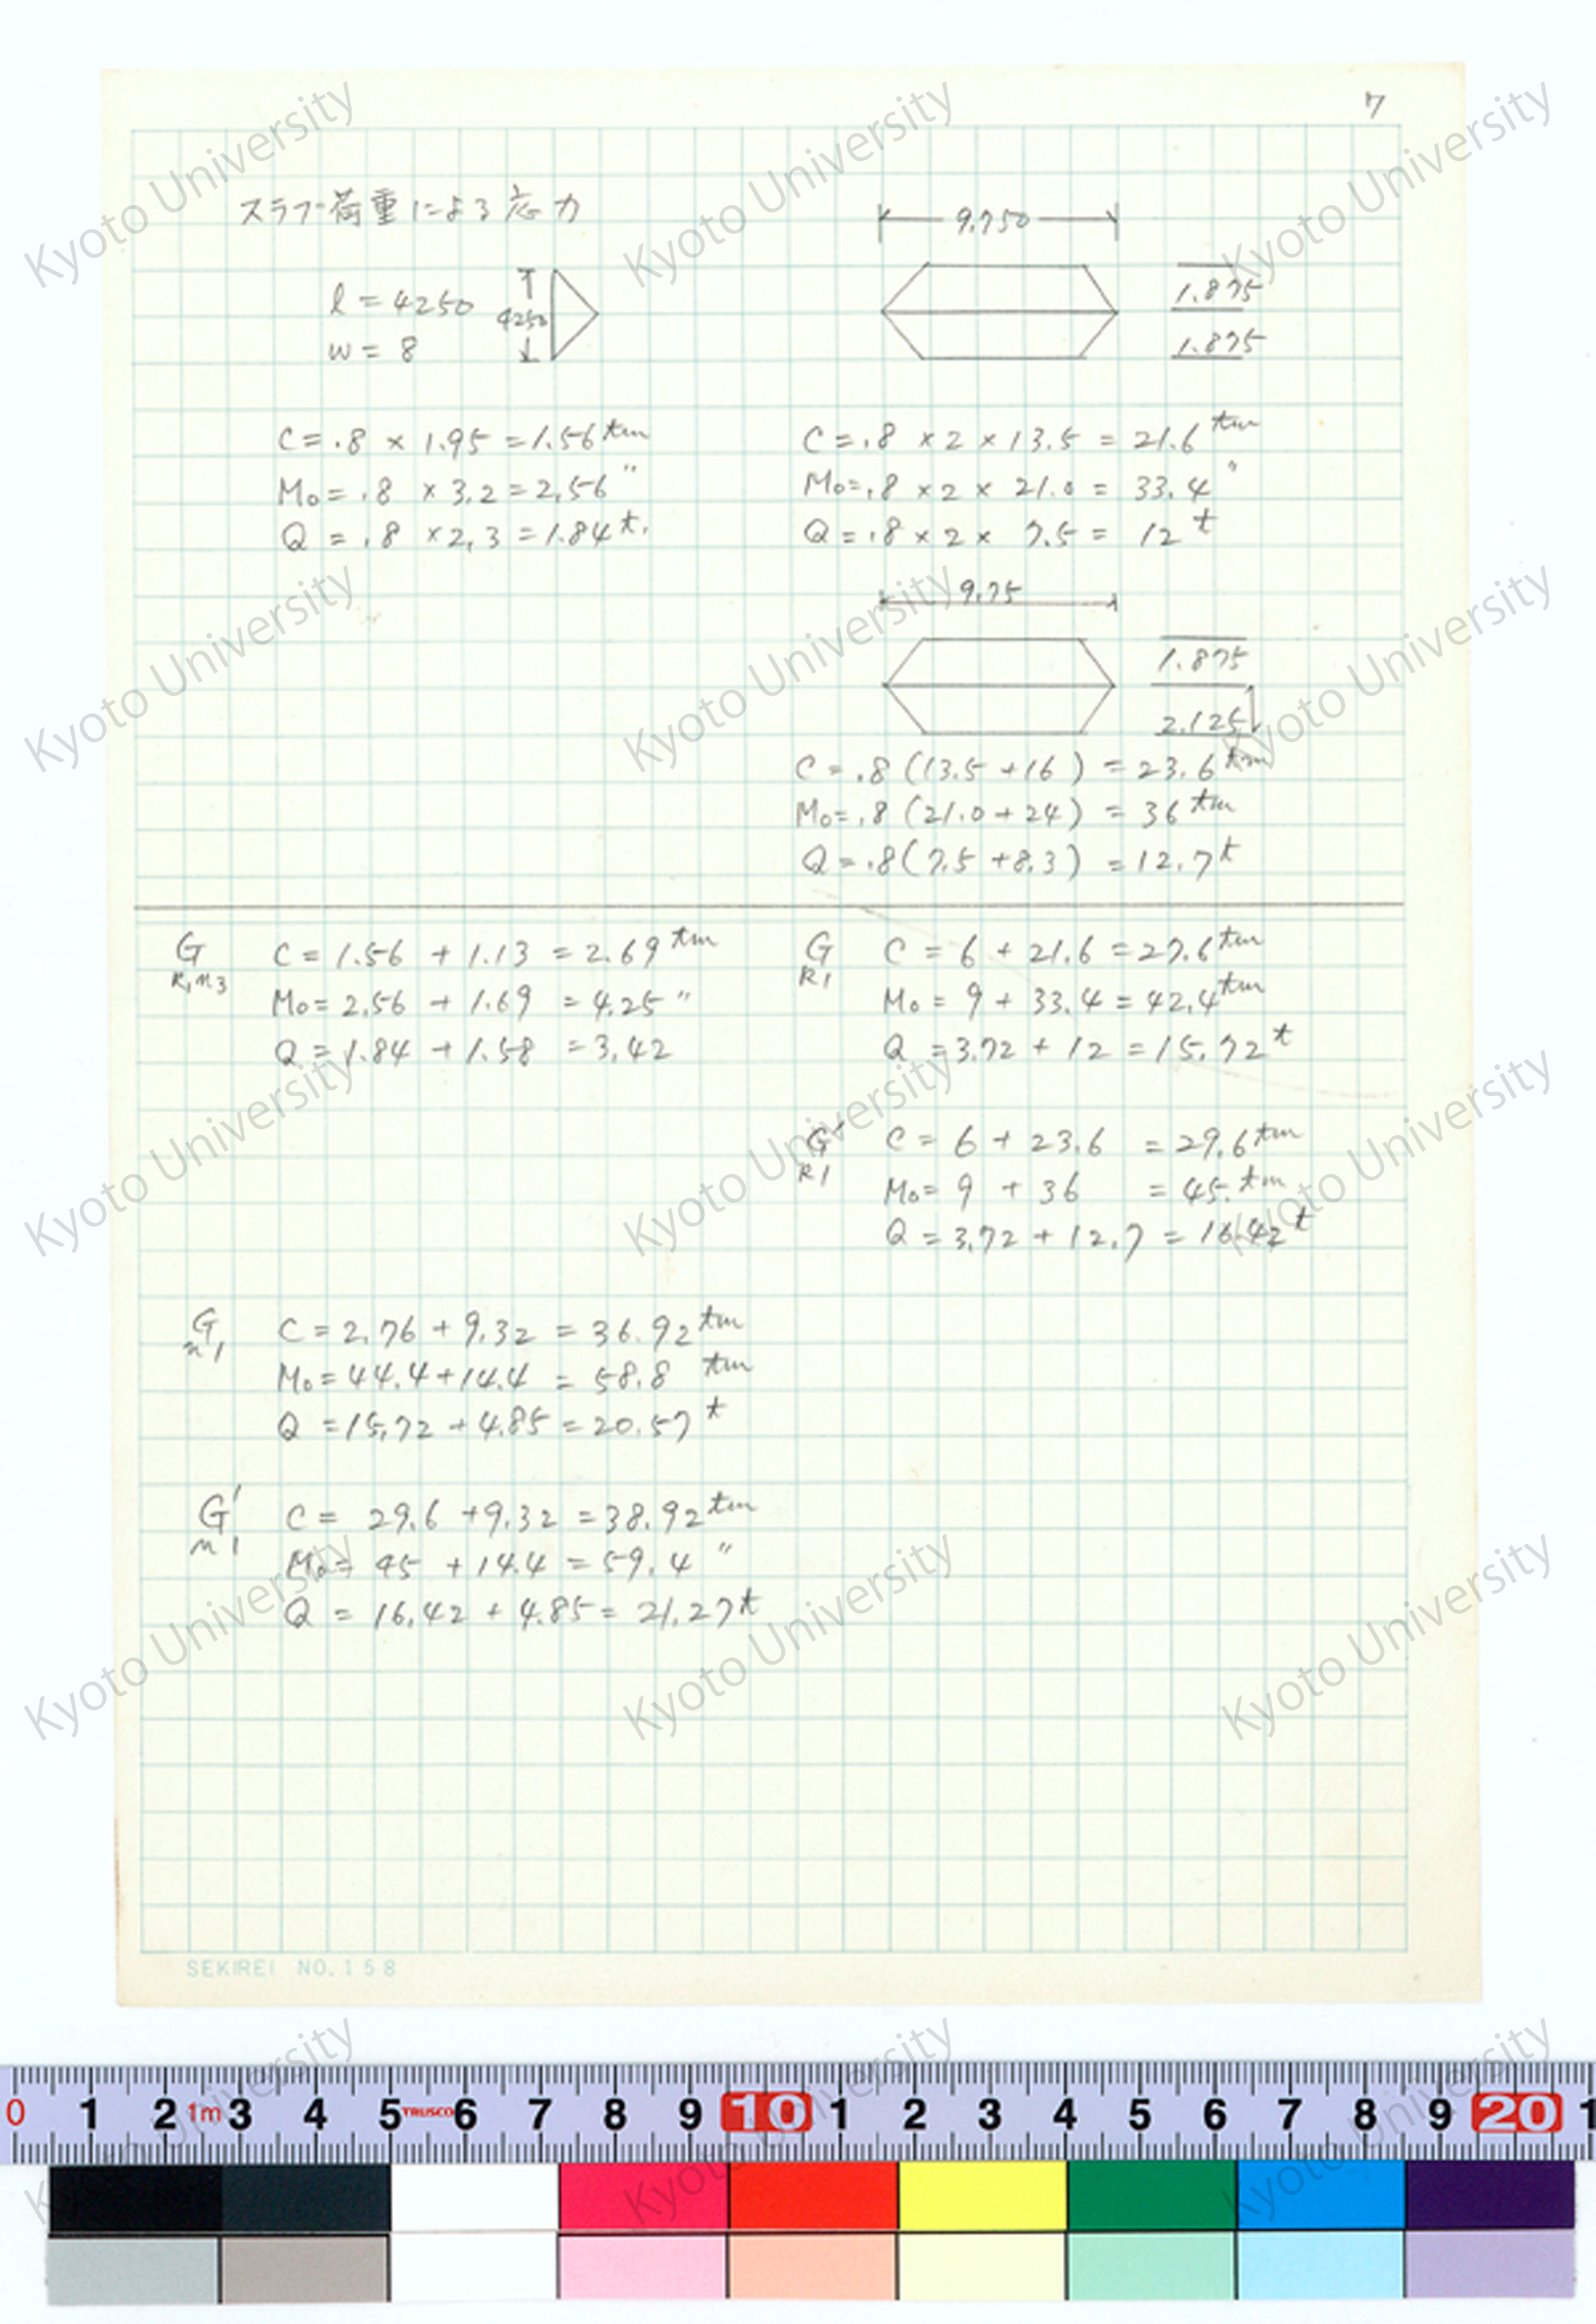 7
スラブ荷重による応力
l = 4250
w = 8
4250
C = .8 × 1.95 = 1.56 tm
Mo = .8 × 3.2 = 2.56 "
Q = .8 × 2.3 = 1.84 t.
9.750
1.875
1.875
C = .8 × 2 × 13.5 = 21.6 tm
Mo = .8 × 2 × 21.0 = 33.4 "
Q = .8 × 2 × 7.5 = 12 t
9.75
1.875
2.125
C = .8 (13.5 + 16) = 23.6 tm
Mo = .8 (21.0 + 24) = 36 tm
Q = .8 (7.5 + 8.3) = 12.7 t
G C = 1.56 + 1.13 = 2.69 tm
R,M3 Mo = 2.56 + 1.69 = 4.25 "
Q = 1.84 + 1.58 = 3.42
G C = 6 + 21.6 = 27.6 tm
R1 Mo = 9 + 33.4 = 42.4 tm
Q = 3.72 + 12 = 15.72 t
G' C = 6 + 23.6 = 29.6 tm
R1 Mo = 9 + 36 = 45. tm
Q = 3.72 + 12.7 = 16.42 t
G C = 2.76 + 9.32 = 36.92 tm
M1 Mo = 44.4 + 14.4 = 58.8 tm
Q = 15.72 + 4.85 = 20.57 t
G' C = 29.6 + 9.32 = 38.92 tm
M1 Mo = 45 + 14.4 = 59.4 "
Q = 16.42 + 4.85 = 21.27 t
SEKIREI NO.158
0 1 2 1m 3 4 5 TRUSCO 6 7 8 9 10 1 2 3 4 5 6 7 8 9 20 1
Kyoto University